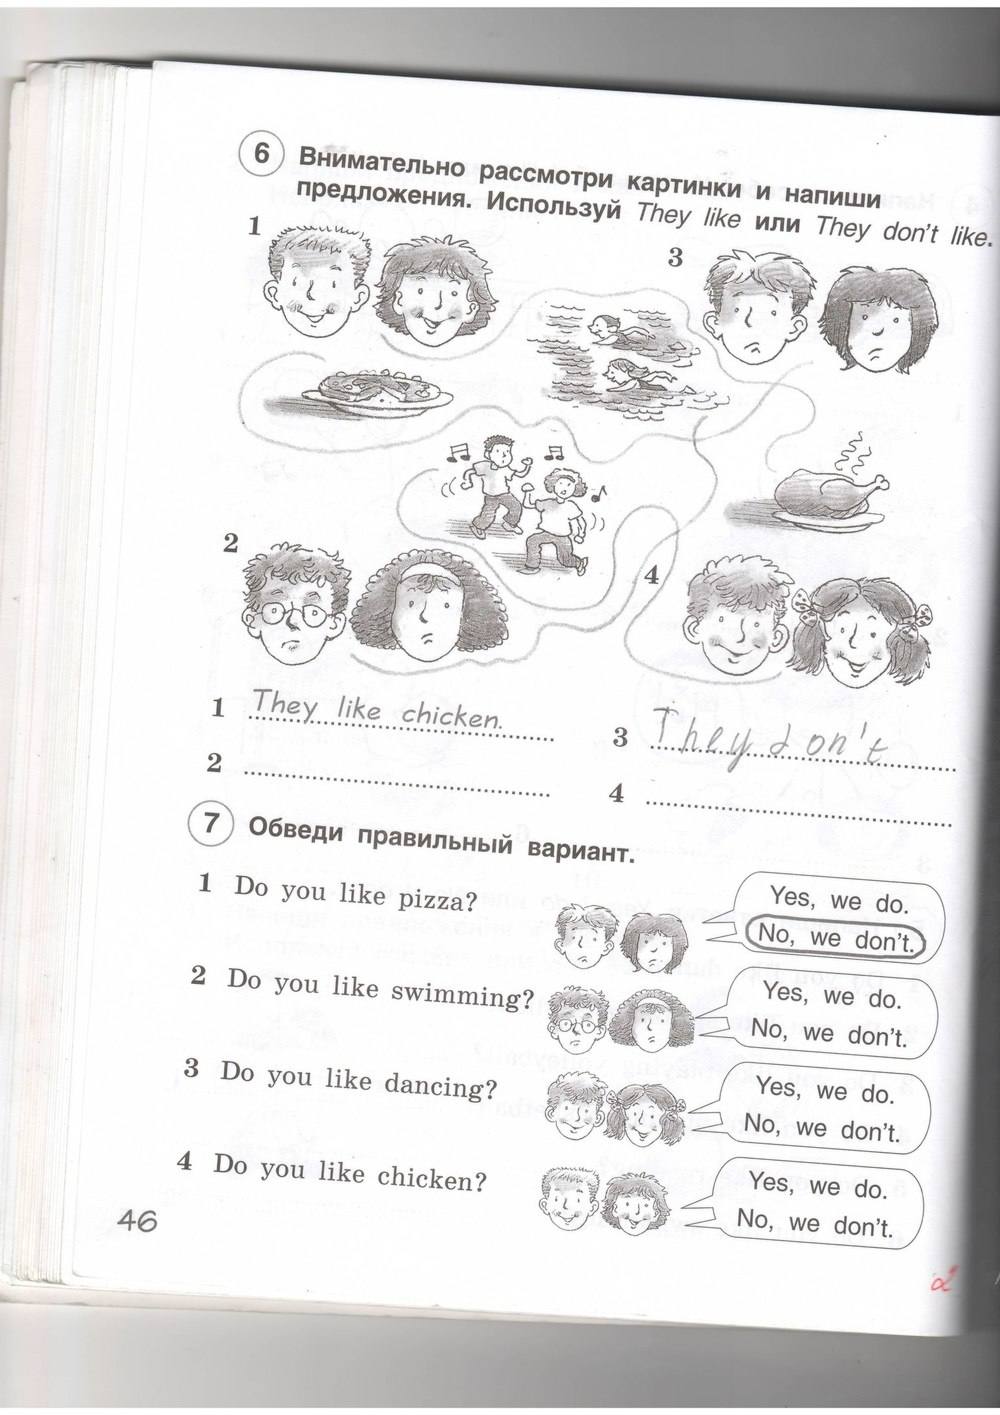 6 Внимательно рассмотри картинки и напиши
предложения. Используй They like или They don't like.
1
3
2
4
1 They like chicken.
3 They don't
2
4
7 Обведи правильный вариант.
1 Do you like pizza?
Yes, we do.
No, we don't.
2 Do you like swimming?
Yes, we do.
No, we don't.
3 Do you like dancing?
Yes, we do.
No, we don't.
4 Do you like chicken?
Yes, we do.
No, we don't.
46